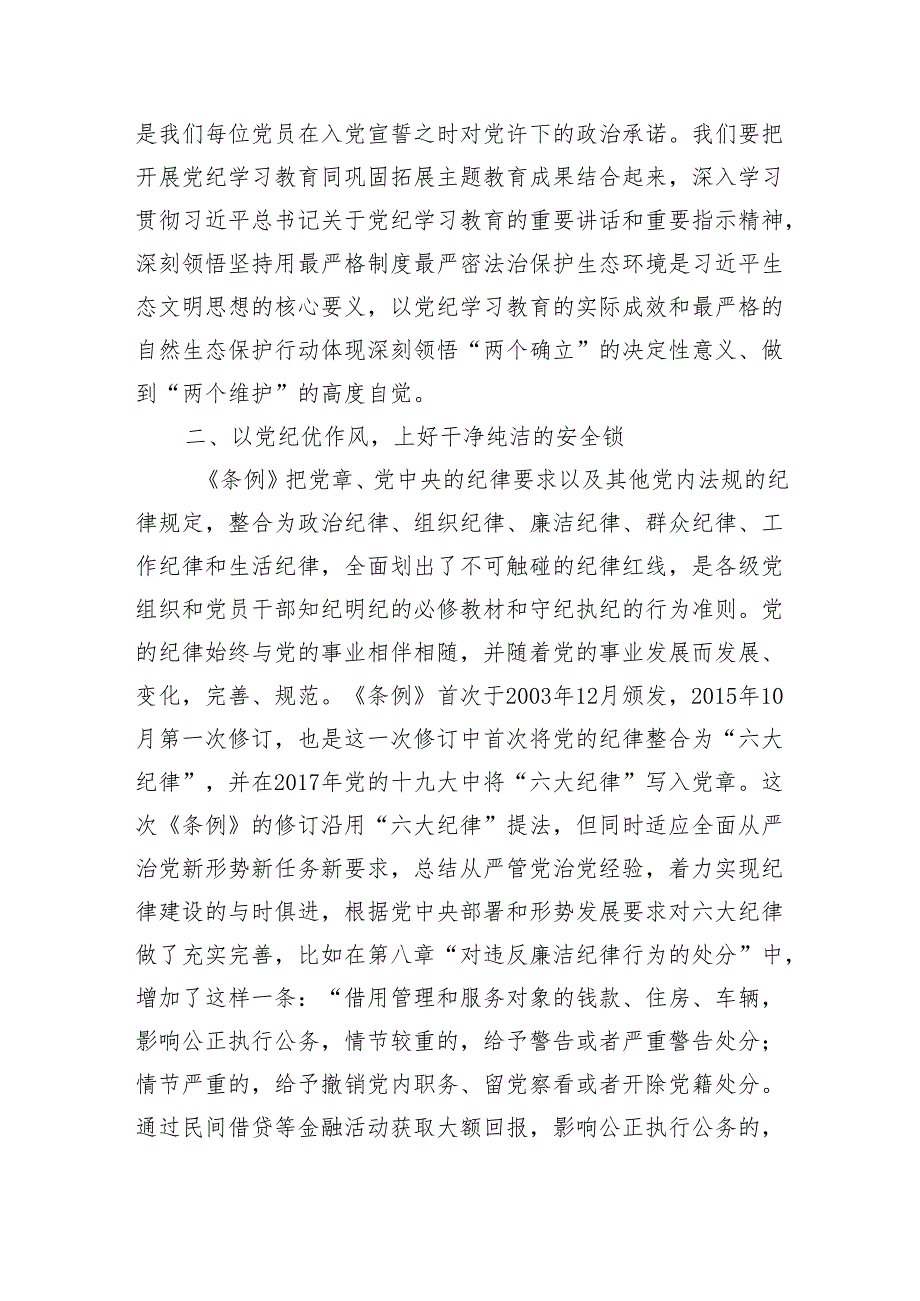 是我们每位党员在入党宣誓之时对党许下的政治承诺。我们要把
开展党纪学习教育同巩固拓展主题教育成果结合起来，深入学习
贯彻习近平总书记关于党纪学习教育的重要讲话和重要指示精神，
深刻领悟坚持用最严格制度最严密法治保护生态环境是习近平生
态文明思想的核心要义，以党纪学习教育的实际成效和最严格的
自然生态保护行动体现深刻领悟“两个确立”的决定性意义、做
到“两个维护”的高度自觉。
二、以党纪优作风，上好干净纯洁的安全锁
《条例》把党章、党中央的纪律要求以及其他党内法规的纪
律规定，整合为政治纪律、组织纪律、廉洁纪律、群众纪律、工
作纪律和生活纪律，全面划出了不可触碰的纪律红线，是各级党
组织和党员干部知纪明纪的必修教材和守纪执纪的行为准则。党
的纪律始终与党的事业相伴相随，并随着党的事业发展而发展、
变化，完善、规范。《条例》首次于2003年12月颁发，2015年10
月第一次修订，也是这一次修订中首次将党的纪律整合为“六大
纪律”，并在2017年党的十九大中将“六大纪律”写入党章。这
次《条例》的修订沿用“六大纪律”提法，但同时适应全面从严
治党新形势新任务新要求，总结从严管党治党经验，着力实现纪
律建设的与时俱进，根据党中央部署和形势发展要求对六大纪律
做了充实完善，比如在第八章“对违反廉洁纪律行为的处分”中，
增加了这样一条：“借用管理和服务对象的钱款、住房、车辆，
影响公正执行公务，情节较重的，给予警告或者严重警告处分；
情节严重的，给予撤销党内职务、留党察看或者开除党籍处分。
通过民间借贷等金融活动获取大额回报，影响公正执行公务的，